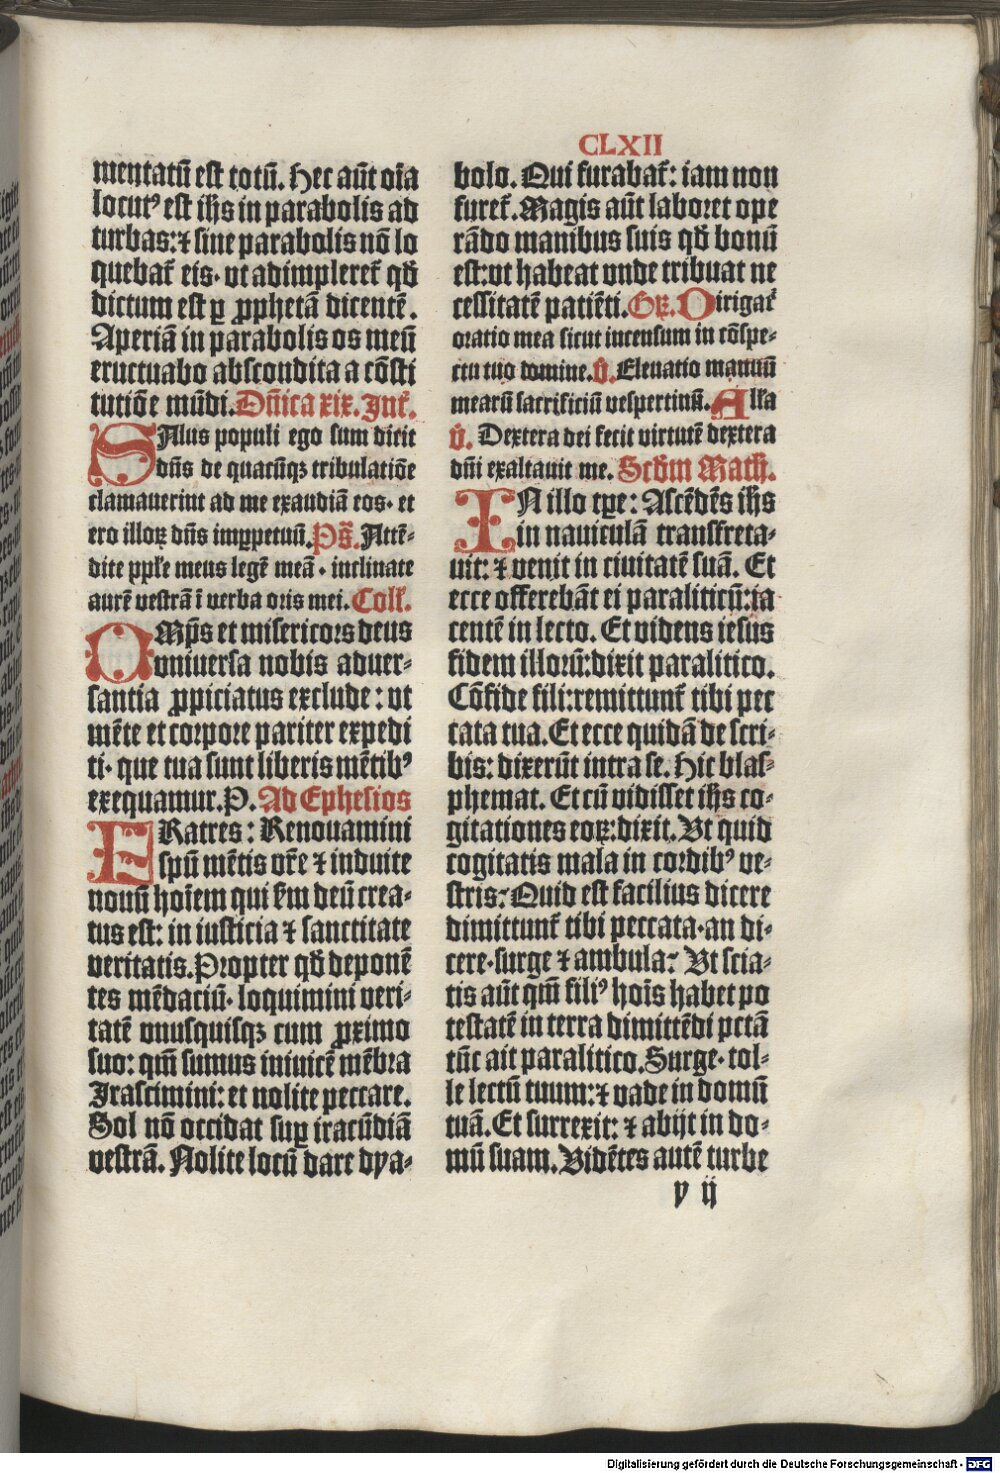 CLXII
mentatū est totū. Hec aūt oīa
locutꝰ est ih̄s in parabolis ad
turbas: ⁊ sine parabolis nō lo
quebat̄ eis· vt adimpleret̄ qd̄
dictum est ꝑ ꝓphetā dicentē.
Aperiā in parabolis os meū
eructuabo abscondita a cōsti
tutiōe mūdi. Dn̄ica xix. Int̄.
SAlus populi ego sum dicit
dn̄s de quacūqꝫ tribulatiōe
clamauerint ad me exaudiā eos· et
ero illoꝝ dn̄s imꝑpetuū. Ps̄. Attē⸗
dite pp̄le meus legē meā · inclinate
aurē vestrā ī verba oris mei. Coll̄.
OMp̄s et misericors deus
vniuersa nobis aduer⸗
santia ꝓpiciatus exclude: vt
mēte et corpore pariter expedi
ti· que tua sunt liberis mētibꝰ
exequamur. P. Ad Ephesios
FRatres: Renouamini
spū mētis vr̄e ⁊ induite
nouū hoīem qui s̄m deū crea⸗
tus est: in iusticia ⁊ sanctitate
veritatis. Propter qd̄ deponē
tes mēdaciū· loquimini veri⸗
tatē vnusquisqꝫ cum ꝓximo
suo: qm̄ sumus inuicē mēbra
Irascimini: et nolite peccare.
Sol nō occidat suꝑ iracūdiā
vestrā. Nolite locū dare dya⸗
bolo. Qui furabat̄: iam non
furet̄. Magis aūt laboret ope
rādo manibus suis qd̄ bonū
est: vt habeat vnde tribuat ne
cessitatē patiēti. Gꝝ. Dirigat̄
oratio mea sicut incensum in cōspe⸗
ctu tuo domine. v̄. Eleuatio manuū
mearū sacrificiū vespertinū. All̄a
v̄. Dextera dei fecit virtutē dextera
dn̄i exaltauit me. Scd̄m Math̄.
IN illo tꝑe: Ascēdēs ih̄s
in nauiculā transfreta⸗
uit: ⁊ venit in ciuitatē suā. Et
ecce offerebāt ei paraliticū: ia
centē in lecto. Et videns iesus
fidem illorū: dixit paralitico.
Cōfide fili: remittunt̄ tibi pec
cata tua. Et ecce quidā de scri⸗
bis: dixerūt intra se. Hic blas⸗
phemat. Et cū vidisset ih̄s co⸗
gitationes eoꝝ: dixit. Vt quid
cogitatis mala in cordibꝰ ve⸗
stris? Quid est facilius dicere
dimittunt̄ tibi peccata· an di⸗
cere· surge ⁊ ambula? Vt scia⸗
tis aūt qm̄ filiꝰ hoīs habet po
testatē in terra dimittēdi pctā
tūc ait paralitico. Surge· tol⸗
le lectū tuum: ⁊ vade in domū
tuā. Et surrexit: ⁊ abijt in do⸗
mū suam. Vidētes autē turbe
y ij
Digitalisierung gefördert durch die Deutsche Forschungsgemeinschaft - DFG